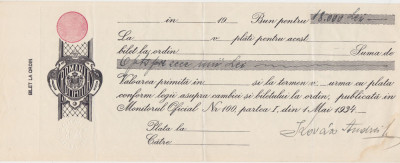 în 19 Bun pentru 18.000 Lei
La v plăti pentru acest
bilet la ordin Suma de
Optsprezece mii Lei
Valoarea primită în și la termen v urma cu plata
conform legii asupra cambiei și biletului la ordin, publicată în
Monitorul Oficial Nr 100, partea I, din 1 Mai 1934
Plata la
Către
BILET LA ORDIN
ROMÂNIA